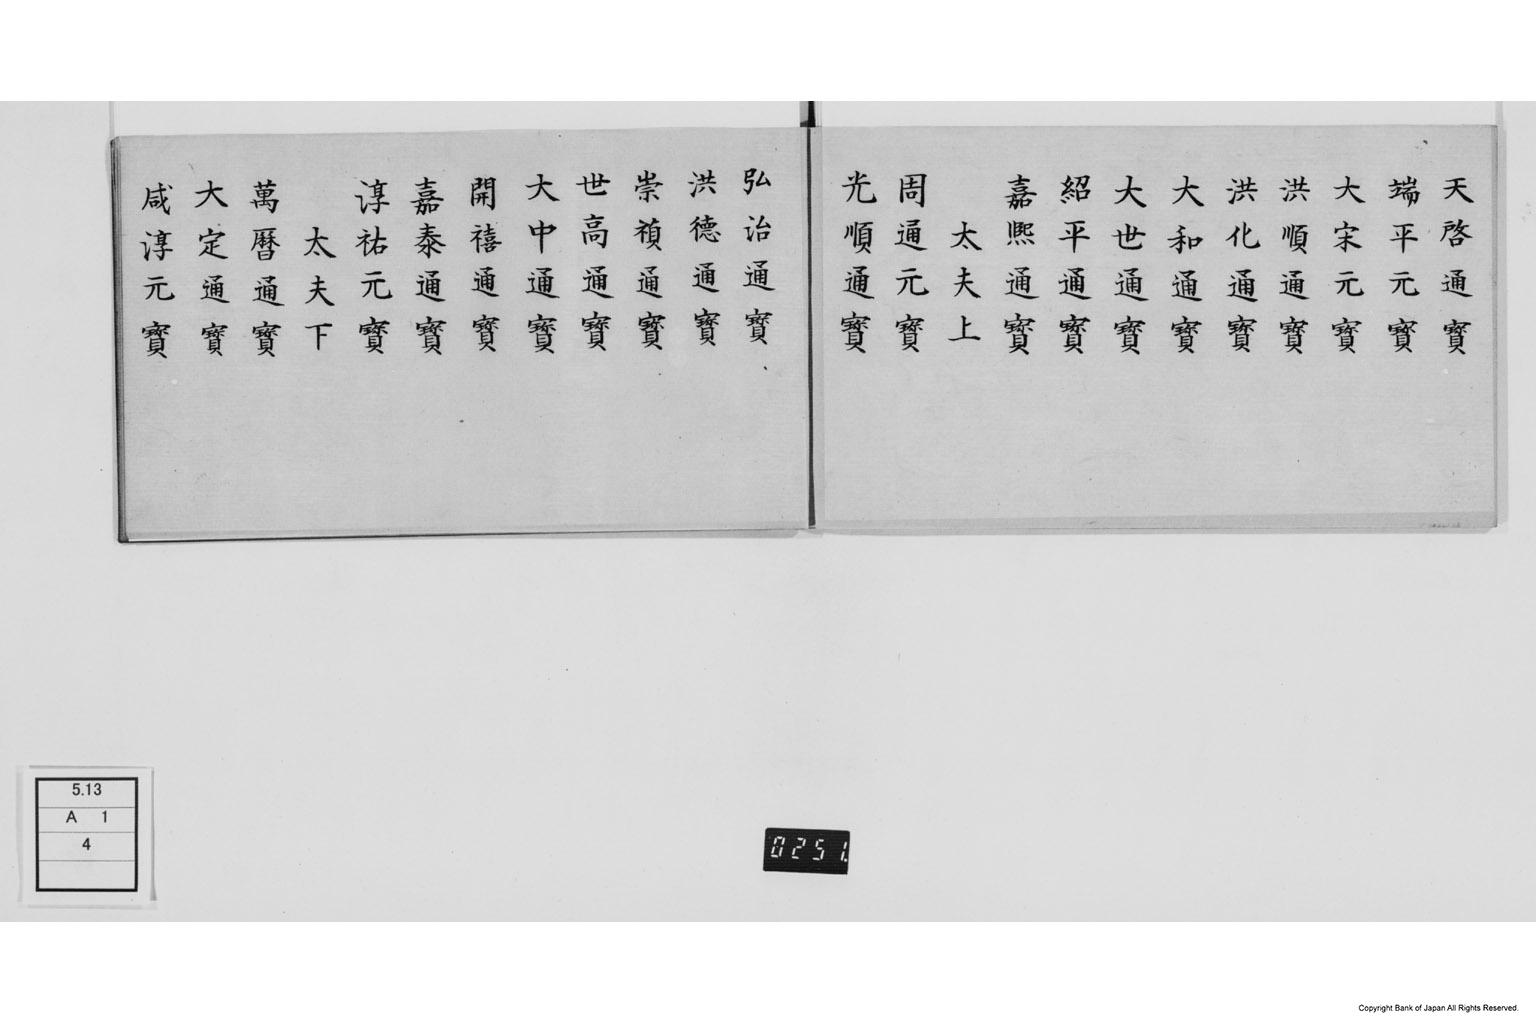 天啓通寳
端平元寳
大宋元寳
洪順通寳
洪化通寳
大和通寳
大世通寳
紹平通寳
嘉熈通寳
太夫上
周通元寳
光順通寳
弘治通寳
洪德通寳
崇禎通寳
世高通寳
大中通寳
開禧通寳
嘉泰通寳
淳祐元寳
太夫下
萬曆通寳
大定通寳
咸淳元寳
5.13
A 1
4
0251.
Copyright Bank of Japan All Rights Reserved.